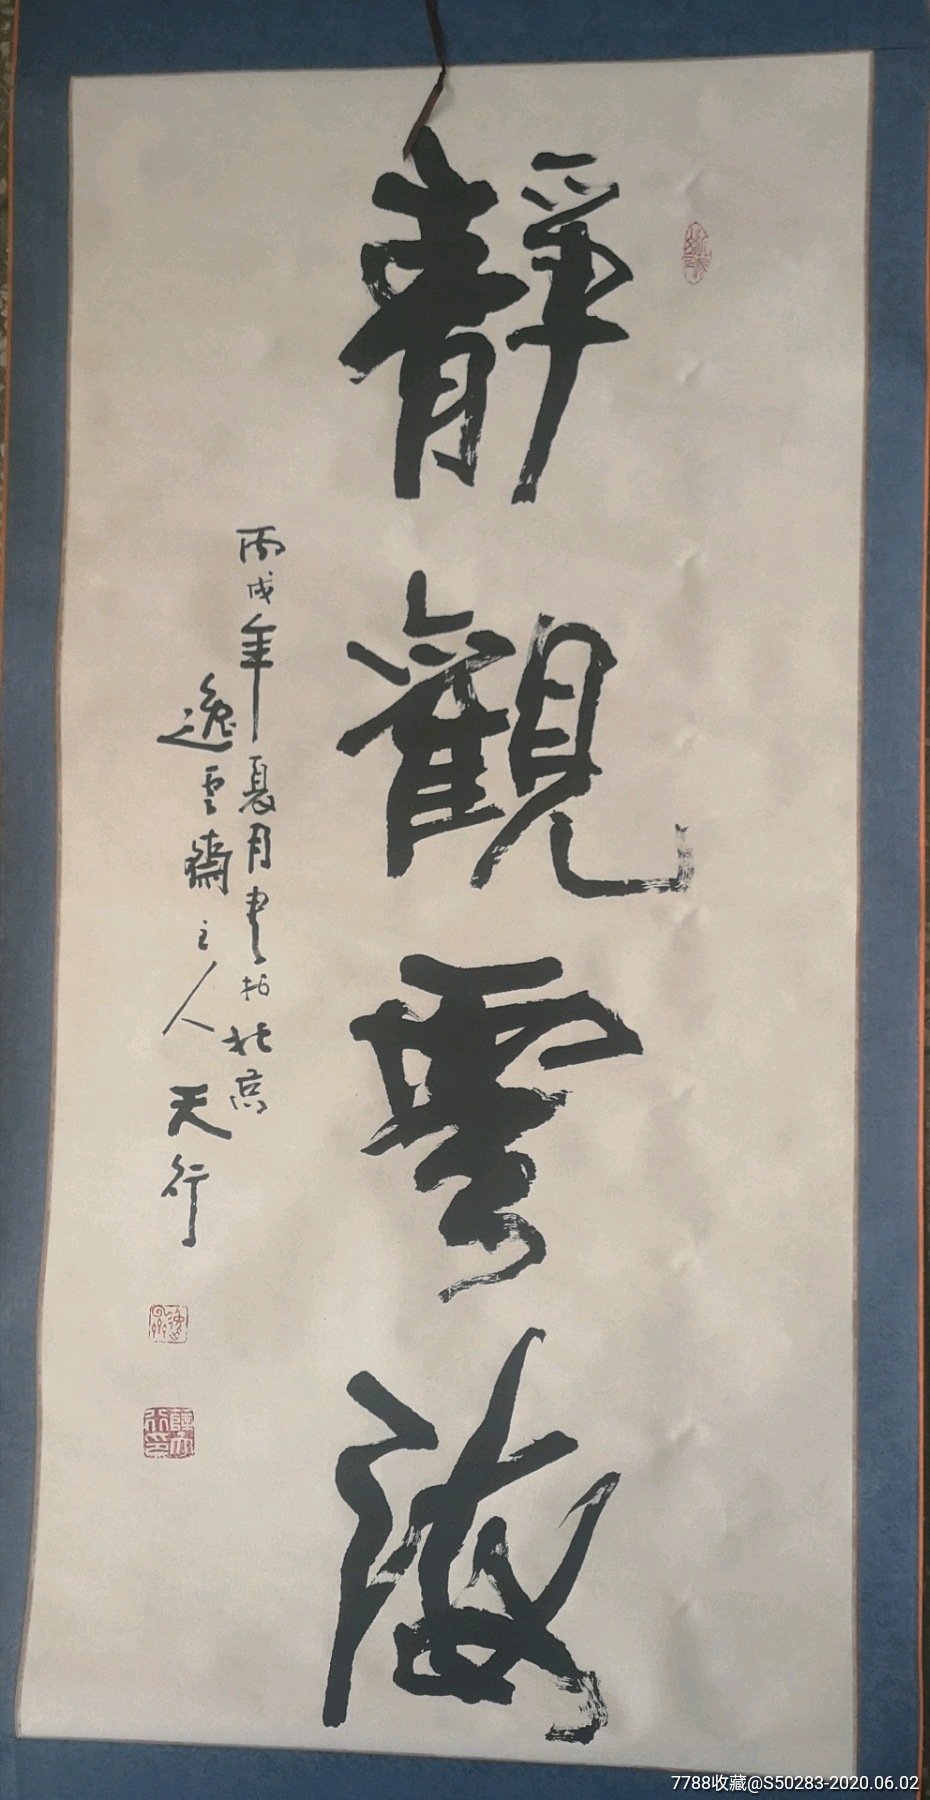 靜觀雲海
丙戌年夏月書於北京
逸雲齋主人天行
7788收藏@S50283-2020.06.02